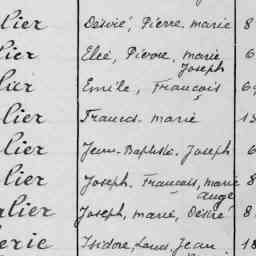 lier Désiré, Pierre. marie 8
lier Elie, Pierre, marie 6
Joseph
lier Emile, François 69
lier Francs. marie 13
lier Jean-Baptiste. Joseph 6
lier Joseph. Français, marie 8
ange
alier Joseph, marie, Désiré 8
erie Isidore, Louis, Jean 18